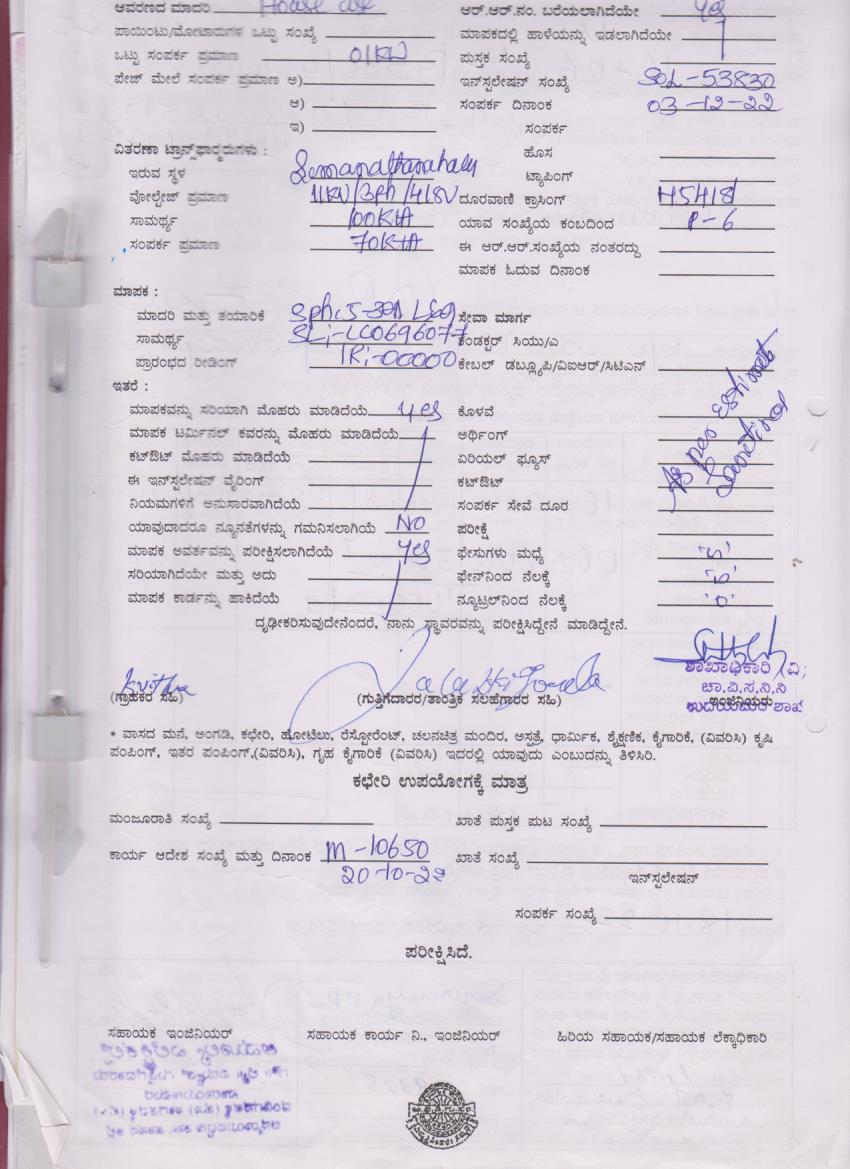 ಆವರಣದ ಮಾದರಿ House use
ಆರ್.ಆರ್.ನಂ. ಬರೆಯಲಾಗಿದೆಯೇ yes
ಪಾಯಿಂಟು/ಮೋಟಾರುಗಳ ಒಟ್ಟು ಸಂಖ್ಯೆ
ಮಾಪಕದಲ್ಲಿ ಹಾಳೆಯನ್ನು ಇಡಲಾಗಿದೆಯೇ
ಒಟ್ಟು ಸಂಪರ್ಕ ಪ್ರಮಾಣ 01KW
ಪುಸ್ತಕ ಸಂಖ್ಯೆ
ಪೇಜ್ ಮೇಲೆ ಸಂಪರ್ಕ ಪ್ರಮಾಣ ಅ)
ಇನ್‌ಸ್ಪಲೇಷನ್ ಸಂಖ್ಯೆ SOL-53830
ಆ)
ಸಂಪರ್ಕ ದಿನಾಂಕ 03-12-22
ಇ)
ಸಂಪರ್ಕ
ವಿತರಣಾ ಟ್ರಾನ್ಸ್‌ಫಾರ್ಮರುಗಳು :
ಹೊಸ
ಇರುವ ಸ್ಥಳ
ಟ್ಯಾಪಿಂಗ್
ವೋಲ್ಟೇಜ್ ಪ್ರಮಾಣ 11KV/3Ph/418V
ದೂರವಾಣಿ ಕ್ರಾಸಿಂಗ್ H5418/
ಸಾಮರ್ಥ್ಯ 100KVA
ಯಾವ ಸಂಖ್ಯೆಯ ಕಂಬದಿಂದ P-6
ಸಂಪರ್ಕ ಪ್ರಮಾಣ 70KVA
ಈ ಆರ್.ಆರ್.ಸಂಖ್ಯೆಯ ನಂತರದ್ದು
ಮಾಪಕ ಓದುವ ದಿನಾಂಕ
ಮಾಪಕ :
ಮಾದರಿ ಮತ್ತು ತಯಾರಿಕೆ
ಸೇವಾ ಮಾರ್ಗ
ಸಾಮರ್ಥ್ಯ SLi-LC0696077
ಕಂಡಕ್ಟರ್ ಸಿಯು/ಎ
ಪ್ರಾರಂಭದ ರೀಡಿಂಗ್ IRi-00000
ಕೇಬಲ್ ಡಬ್ಲ್ಯೂಪಿ/ವಿಐಆರ್/ಸಿಟಿಎನ್
ಇತರೆ :
ಮಾಪಕವನ್ನು ಸರಿಯಾಗಿ ಮೊಹರು ಮಾಡಿದೆಯೆ yes
ಕೊಳವೆ
ಮಾಪಕ ಟರ್ಮಿನಲ್ ಕವರನ್ನು ಮೊಹರು ಮಾಡಿದೆಯೆ
ಅರ್ಥಿಂಗ್
As per Estimate
Sanctioned
ಕಟ್‌ಔಟ್ ಮೊಹರು ಮಾಡಿದೆಯೆ
ಏರಿಯಲ್ ಫ್ಯೂಸ್
ಈ ಇನ್‌ಸ್ಪಲೇಷನ್ ವೈರಿಂಗ್
ಕಟ್‌ಔಟ್
ನಿಯಮಗಳಿಗೆ ಅನುಸಾರವಾಗಿದೆಯೆ
ಸಂಪರ್ಕ ಸೇವೆ ದೂರ
ಯಾವುದಾದರೂ ನ್ಯೂನತೆಗಳನ್ನು ಗಮನಿಸಲಾಗಿಯೆ NO
ಪರೀಕ್ಷೆ
ಮಾಪಕ ಆವರ್ತವನ್ನು ಪರೀಕ್ಷಿಸಲಾಗಿದೆಯೆ yes
ಫೇಸುಗಳು ಮಧ್ಯೆ
ಸರಿಯಾಗಿದೆಯೇ ಮತ್ತು ಅದು
ಫೇಸ್‌ನಿಂದ ನೆಲಕ್ಕೆ
ಮಾಪಕ ಕಾರ್ಡನ್ನು ಹಾಕಿದೆಯೆ
ನ್ಯೂಟ್ರಲ್‌ನಿಂದ ನೆಲಕ್ಕೆ '0'
ದೃಢೀಕರಿಸುವುದೇನೆಂದರೆ, ನಾನು ಸ್ಥಾವರವನ್ನು ಪರೀಕ್ಷಿಸಿದ್ದೇನೆ ಮಾಡಿದ್ದೇನೆ.
ಶಾಖಾಧಿಕಾರಿ (ವಿ)
ಚಾ.ವಿ.ಸ.ನಿ.ನಿ
(ಗ್ರಾಹಕರ ಸಹಿ)
(ಗುತ್ತಿಗೆದಾರರ/ತಾಂತ್ರಿಕ ಸಲಹೆಗಾರರ ಸಹಿ)
ಇಂಜಿನಿಯರು
* ವಾಸದ ಮನೆ, ಅಂಗಡಿ, ಕಛೇರಿ, ಹೋಟೆಲು, ರೆಸ್ಟೋರೆಂಟ್, ಚಲನಚಿತ್ರ ಮಂದಿರ, ಆಸ್ಪತ್ರೆ, ಧಾರ್ಮಿಕ, ಶೈಕ್ಷಣಿಕ, ಕೈಗಾರಿಕೆ, (ವಿವರಿಸಿ) ಕೃಷಿ
ಪಂಪಿಂಗ್, ಇತರ ಪಂಪಿಂಗ್,(ವಿವರಿಸಿ), ಗೃಹ ಕೈಗಾರಿಕೆ (ವಿವರಿಸಿ) ಇದರಲ್ಲಿ ಯಾವುದು ಎಂಬುದನ್ನು ತಿಳಿಸಿರಿ.
ಕಛೇರಿ ಉಪಯೋಗಕ್ಕೆ ಮಾತ್ರ
ಮಂಜೂರಾತಿ ಸಂಖ್ಯೆ
ಖಾತೆ ಪುಸ್ತಕ ಪುಟ ಸಂಖ್ಯೆ
ಕಾರ್ಯ ಆದೇಶ ಸಂಖ್ಯೆ ಮತ್ತು ದಿನಾಂಕ M-10650
ಖಾತೆ ಸಂಖ್ಯೆ
20-10-22
ಇನ್‌ಸ್ಪಲೇಷನ್
ಸಂಪರ್ಕ ಸಂಖ್ಯೆ
ಪರೀಕ್ಷಿಸಿದೆ.
ಸಹಾಯಕ ಇಂಜಿನಿಯರ್
ಸಹಾಯಕ ಕಾರ್ಯ ನಿ., ಇಂಜಿನಿಯರ್
ಹಿರಿಯ ಸಹಾಯಕ/ಸಹಾಯಕ ಲೆಕ್ಕಾಧಿಕಾರಿ